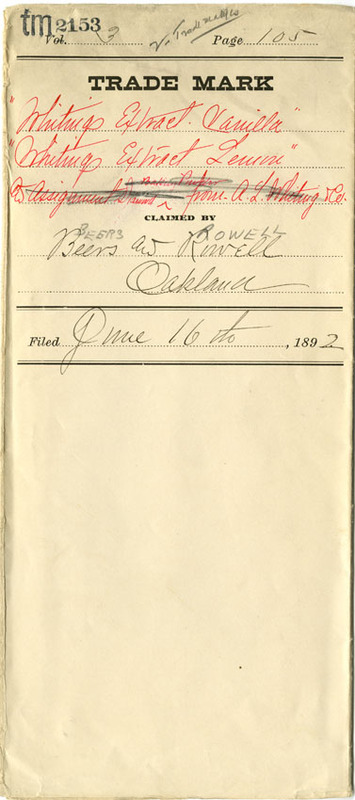 tm 2153
Vol. 3 Page 105
TRADE MARK
"Whitings Extract Vanilla"
"Whitings Extract Lemon"
Assignment from A. L. Whiting Co.
CLAIMED BY
BEERS ROWELL
Beers and Rowell
Oakland
Filed June 16th, 1892